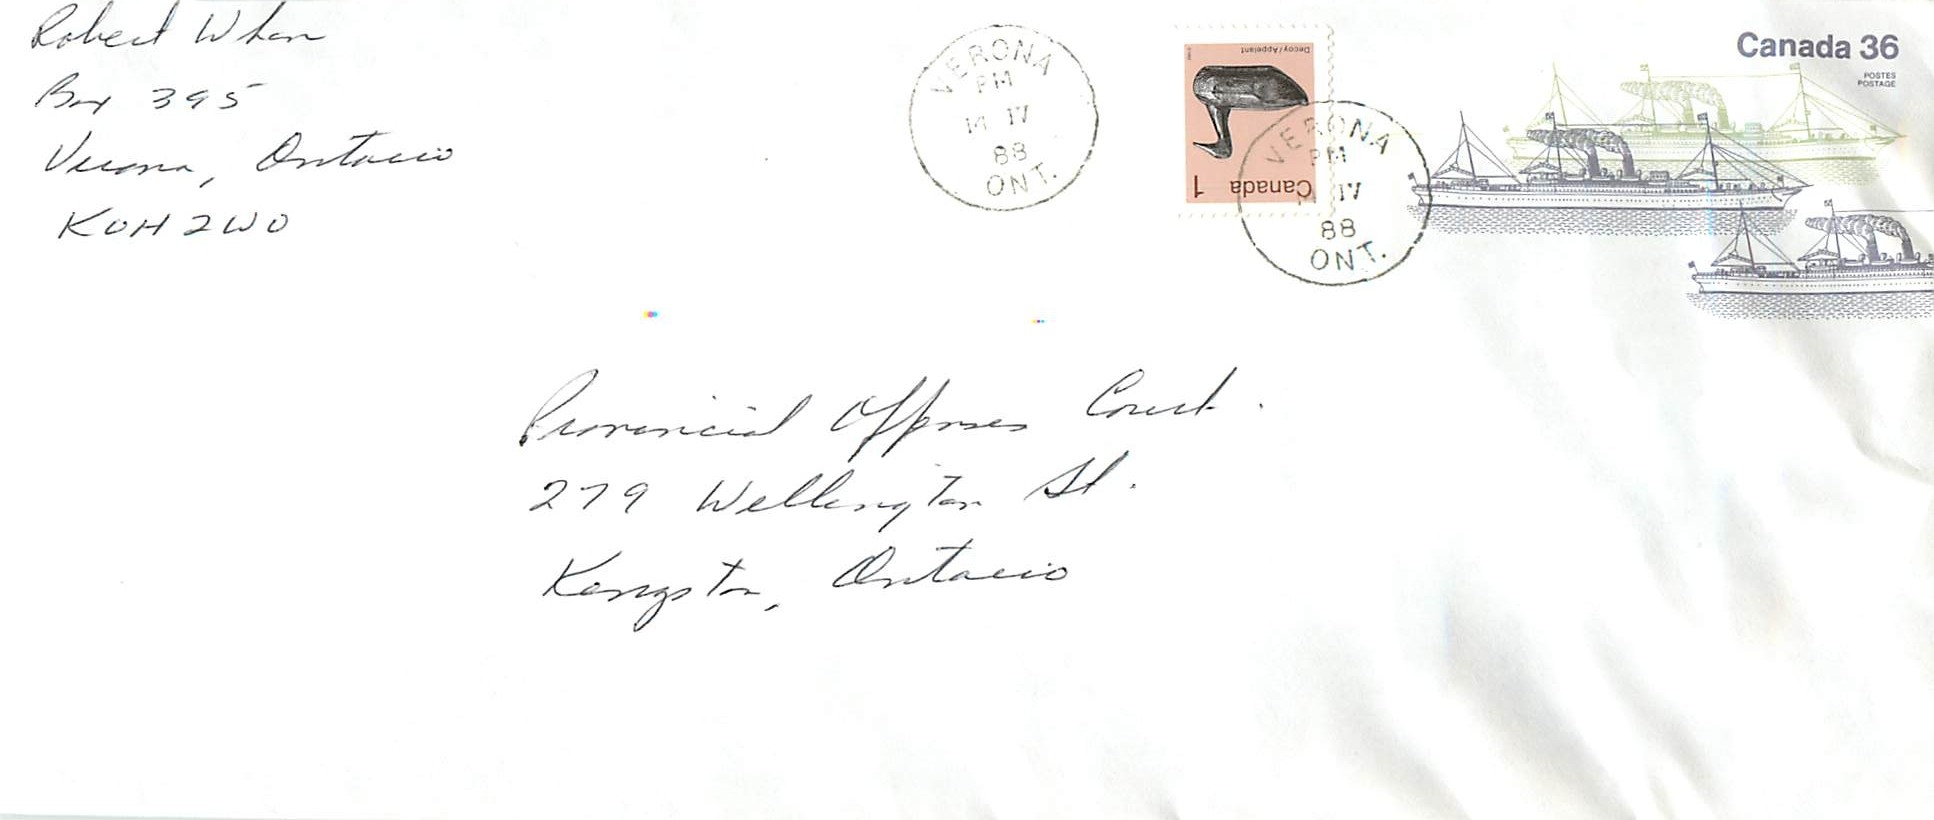 Robert Whan
Box 395
Verona, Ontario
K0H 2W0
VERONA
PM
14 IV
88
ONT.
Decoy/Appelant
Canada 1
VERONA
PM
IV
88
ONT.
Canada 36
POSTES
POSTAGE
Provincial Offenses Court.
279 Wellington St.
Kingston, Ontario